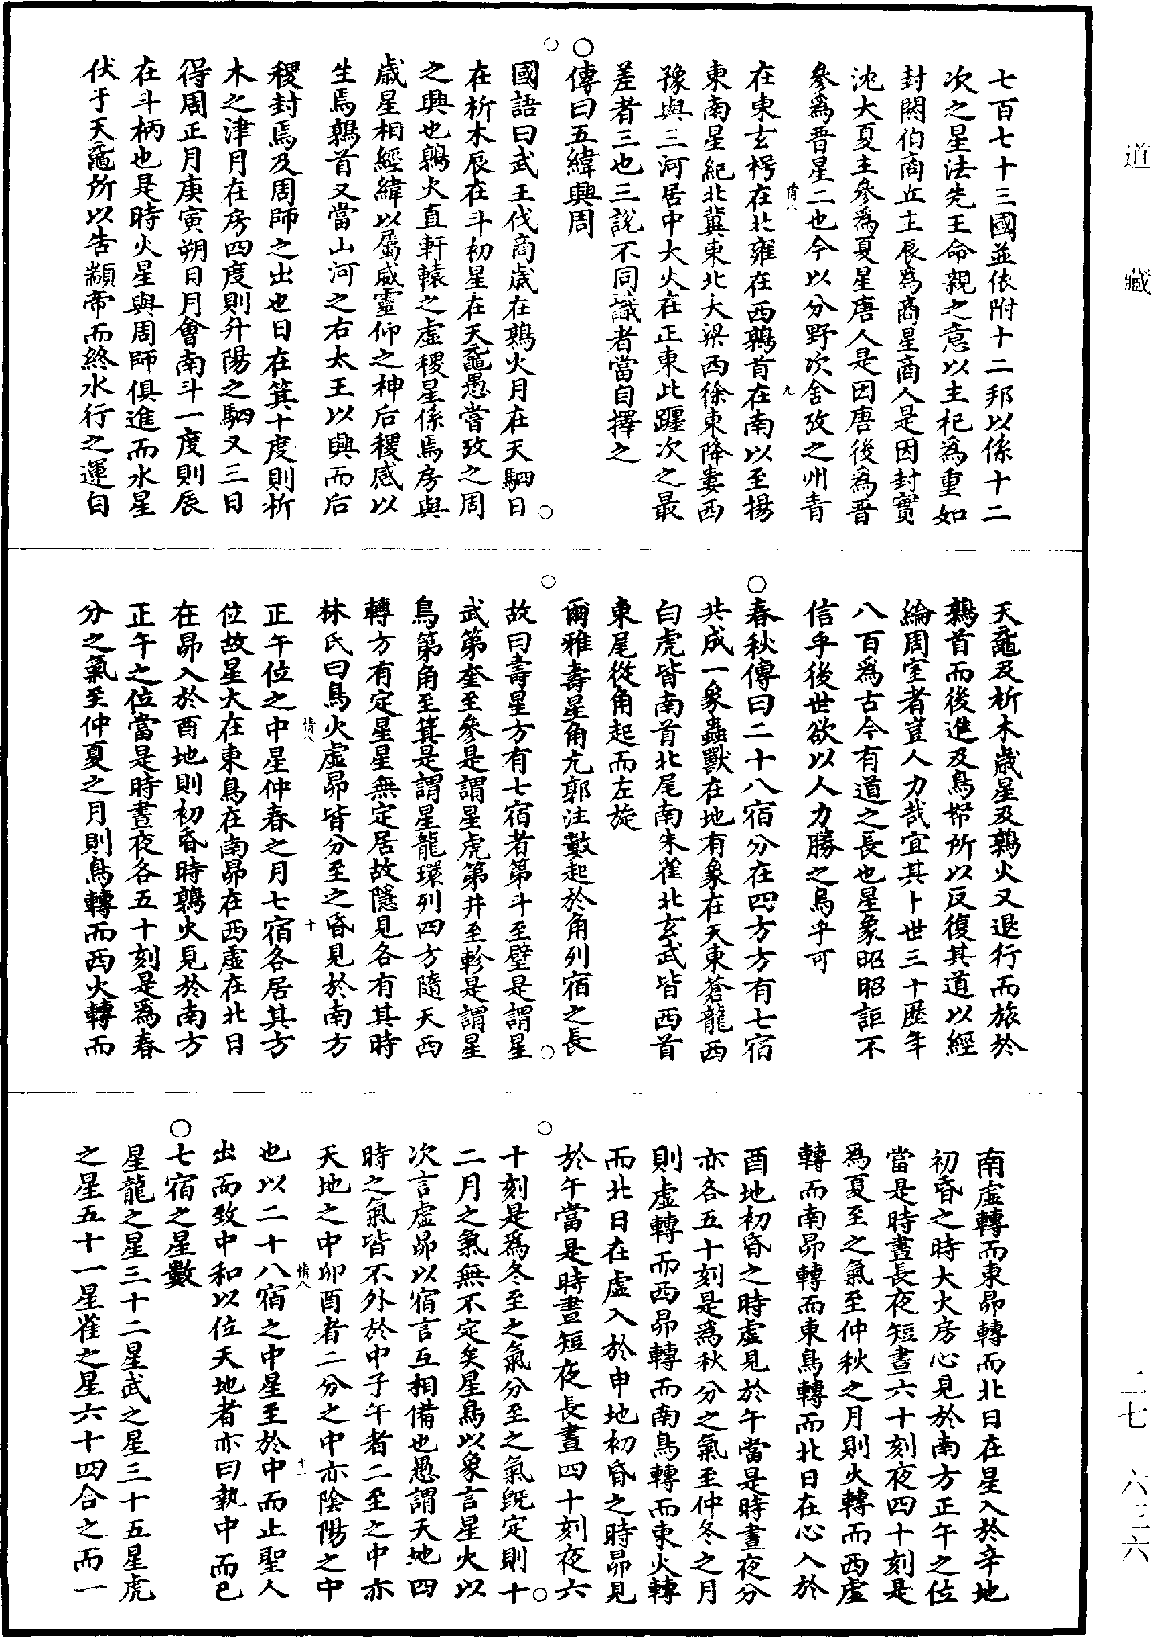 道藏
七百七十三國並依附十二邦以係十二
次之星法先王命親之意以主祀為重如
封閼伯商丘主辰為商星商人是因封實
沈大夏主參為夏星唐人是因唐後為晉
參為晉星二也今以分野次舍攷之州青
在東玄枵在北雍在西鶉首在南以至揚
東南星紀北冀東北大梁西徐東降婁西
豫與三河居中大火在正東此躔次之最
差者三也三說不同識者當自擇之
○傳曰五緯興周
國語曰武王伐商歲在鶉火月在天駟日
在析木辰在斗初星在天黿愚嘗攷之周
之興也鶉火直軒轅之虛稷星係焉房與
歲星相經緯以屬威靈仰之神后稷感以
生焉鶉首又當山河之右太王以興而后
稷封焉及周師之出也日在箕十度則析
木之津月在房四度則升陽之駟又三日
得周正月庚寅朔日月會南斗一度則辰
在斗柄也是時火星與周師俱進而水星
伏于天黿所以告顓帝而終水行之運自
天黿及析木歲星及鶉火又退行而旅於
鶉首而後進及鳥帑所以反復其道以經
綸周室者豈人力哉宜其卜世三十歷年
八百為古今有道之長也星象昭昭詎不
信乎後世欲以人力勝之烏乎可
○春秋傳曰二十八宿分在四方方有七宿
共成一象蟲獸在地有象在天東蒼龍西
白虎皆南首北尾南朱雀北玄武皆西首
東尾從角起而左旋
爾雅壽星角亢郭注數起於角列宿之長
故曰壽星方有七宿者第斗至壁是謂星
武第奎至參是謂星虎第井至軫是謂星
鳥第角至箕是謂星龍環列四方隨天西
轉方有定星星無定居故隱見各有其時
林氏曰鳥火虛昴皆分至之昏見於南方
正午位之中星仲春之月七宿各居其方
位故星大在東鳥在南昴在西虛在北日
在昴入於酉地則初昏時鶉火見於南方
正午之位當是時晝夜各五十刻是為春
分之氣至仲夏之月則鳥轉而西火轉而
南虛轉而東昴轉而北日在星入於辛地
初昏之時大火房心見於南方正午之位
當是時晝長夜短晝六十刻夜四十刻是
為夏至之氣至仲秋之月則火轉而西虛
轉而南昴轉而東鳥轉而北日在心入於
酉地初昏之時虛見於午當是時晝夜分
亦各五十刻是為秋分之氣至仲冬之月
則虛轉而西昴轉而南鳥轉而東火轉
而北日在虛入於申地初昏之時昴見
於午當是時晝短夜長晝四十刻夜六
十刻是為冬至之氣分至之氣既定則十
二月之氣無不定矣星鳥以象言星火以
次言虛昴以宿言互相備也愚謂天地四
時之氣皆不外於中子午者二至之中亦
天地之中卯酉者二分之中亦陰陽之中
也以二十八宿之中星至於中而止聖人
出而致中和以位天地者亦曰執中而已
○七宿之星數
星龍之星三十二星武之星三十五星虎
之星五十一星雀之星六十四合之而一
二七 六三六
情八
九
情八
十
情八
十一